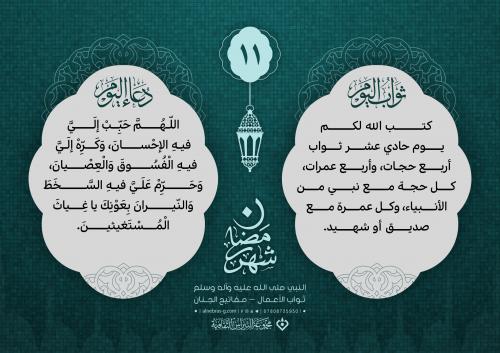 ١١
ثواب اليوم
كتب الله لكم
يوم حادي عشر ثواب
أربع حجات، وأربع عمرات،
كل حجة مع نبي من
الأنبياء، وكل عمرة مع
صديق أو شهيد.
دعاء اليوم
اللّهُمَّ حَبِّبْ إلَيَّ
فيهِ الإحْسانَ، وَكَرِّهْ إلَيَّ
فيهِ الْفُسُوقَ وَالعِصْيانَ،
وَحَرِّمْ عَلَيَّ فيهِ السَّخَطَ
وَالنّيرانَ بِعَوْنِكَ يا غِياثَ
الْمُسْتَغيثينَ.
شهر رمضان
النبي صلى الله عليه وآله وسلم
ثواب الأعمال – مفاتيح الجنان
alnebras-g.com
07808705950
مجموعة النبراس الثقافية